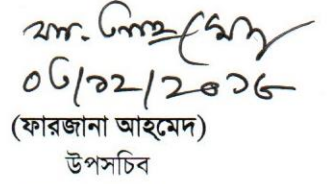 ০৬/১২/২০১৬
(ফারজানা আহমেদ)
উপসচিব